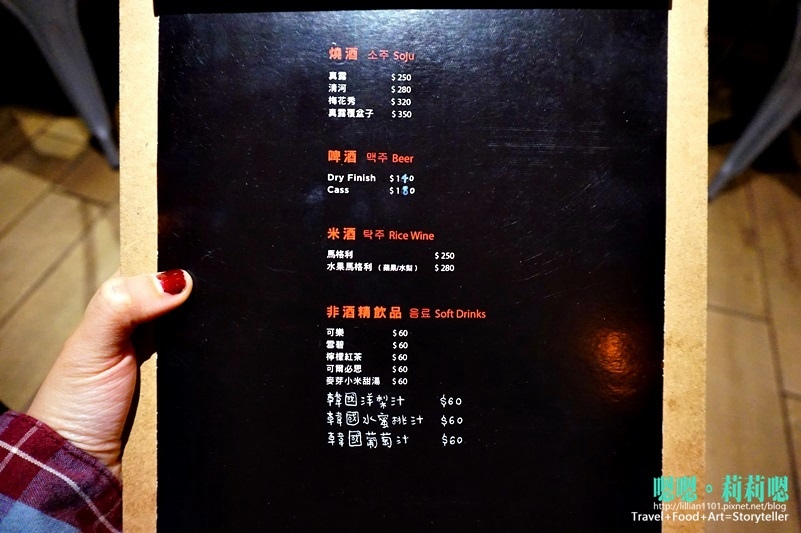 燒酒 소주 Soju
真露 $250
清河 $280
梅花秀 $320
真露覆盆子 $350
啤酒 맥주 Beer
Dry Finish $140
Cass $180
米酒 탁주 Rice Wine
馬格利 $250
水果馬格利 (蘋果/水梨) $280
非酒精飲品 음료 Soft Drinks
可樂 $60
雪碧 $60
檸檬紅茶 $60
可爾必思 $60
麥芽小米甜湯 $60
韓國洋梨汁 $60
韓國水蜜桃汁 $60
韓國葡萄汁 $60
嗯嗯。莉莉嗯
http://lillian1101.pixnet.net/blog
Travel+Food+Art=Storyteller